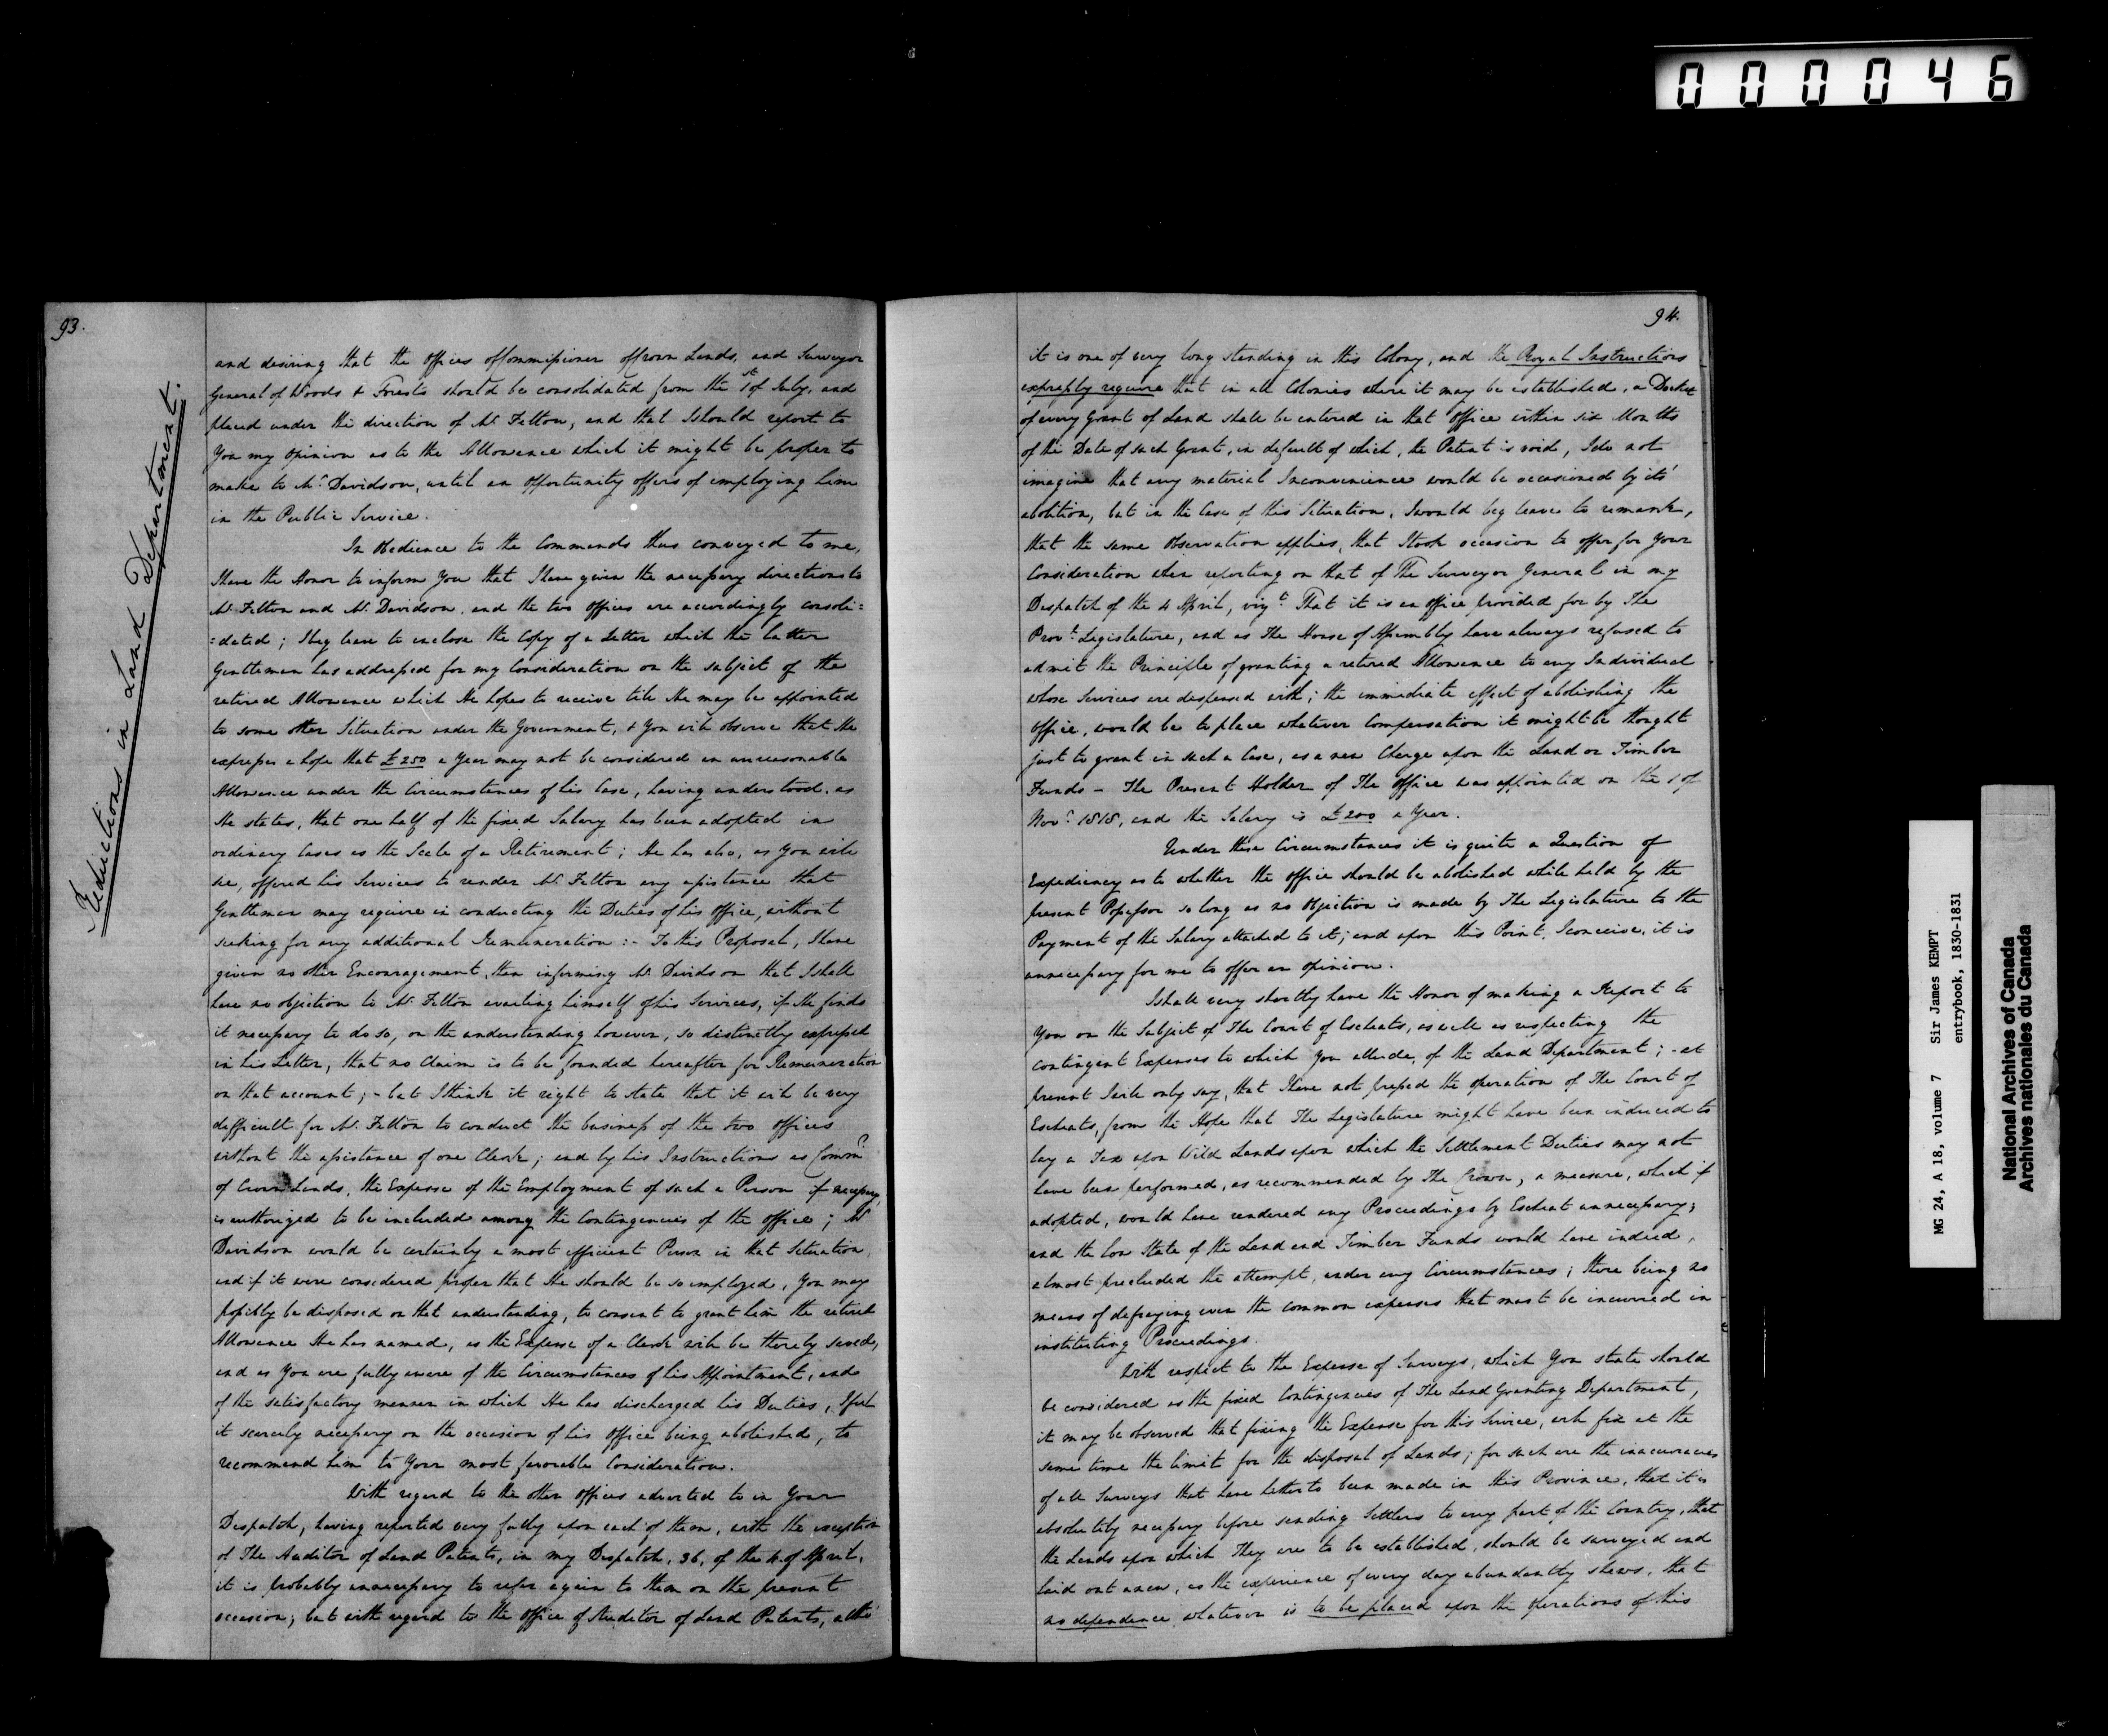 000046
93.
Reductions in Land Department.
and desiring that the Offices of Commissioner of Crown Lands, and Surveyor
General of Woods & Forests should be consolidated from the 1st of July, and
placed under the direction of Mr Felton, and that I should report to
You my opinion as to the Allowance which it might be proper to
make to Mr Davidson, until an opportunity offers of employing him
in the Public Service.
In Obedience to the Commands thus conveyed to me,
I have the Honor to inform You that I have given the necessary directions to
Mr Felton and Mr Davidson, and the two Offices are accordingly consoli=
=dated; I beg leave to enclose the Copy of a Letter which the latter
Gentleman has addressed for my Consideration on the subject of the
retired Allowance which He hopes to receive till He may be appointed
to some other Situation under the Government, & You will observe that He
expresses a hope that £250 a Year may not be considered an unreasonable
Allowance under the Circumstances of his Case, having understood, as
He states, that one half of the fixed Salary has been adopted in
ordinary Cases as the Scale of a Retirement; He has also, as You will
see, offered his Services to render Mr Felton any assistance that
Gentleman may require in conducting the Duties of his Office, without
seeking for any additional Remuneration :- To this Proposal, I have
given no other Encouragement, than informing Mr Davidson that I shall
have no objection to Mr Felton availing himself of his Services, if He finds
it necessary to do so, on the understanding however, so distinctly expressed
in his Letter, that no Claim is to be founded hereafter for Remuneration
on that account; - but I think it right to state that it will be very
difficult for Mr Felton to conduct the business of the two Offices
without the assistance of one Clerk; and by his Instructions as Commr
of Crown Lands, the Expense of the Employment of such a Person if necessary,
is authorized to be included among the Contingencies of the Office; Mr
Davidson would be certainly a most efficient Person in that Situation,
and if it were considered proper that He should be so employed, You may
possibly be disposed on that understanding, to consent to grant him the retired
Allowance He has named, as the Expense of a Clerk will be thereby saved,
and as You are fully aware of the Circumstances of his Appointment, and
of the satisfactory manner in which He has discharged his Duties, I feel
it scarcely necessary on the occasion of his Office being abolished, to
recommend him to Your most favorable Consideration.
With regard to the other Offices adverted to in Your
Despatch, having reported very fully upon each of them, with the exception
of The Auditor of Land Patents, in my Despatch, 36, of the 4 of April,
it is probably unnecessary to refer again to them on the present
occasion; but with regard to the Office of Auditor of Land Patents, altho'
94.
it is one of very long standing in this Colony, and the Royal Instructions
expressly require that in all Colonies where it may be established, a Docket
of every Grant of Land shall be entered in that Office within six Months
of the Date of such Grant, in default of which, the Patent is void, I do not
imagine that any material Inconvenience would be occasioned by its'
abolition, but in the Case of this Situation, I would beg leave to remark,
that the same Observation applies, that I took occasion to offer for Your
Consideration when reporting on that of The Surveyor General in my
Despatch of the 4 April, vizt That it is an Office provided for by The
Provl Legislature, and as The House of Assembly have always refused to
admit the Principle of granting a retired Allowance to any Individual
whose Services are dispensed with; the immediate effect of abolishing the
Office, would be to place whatever Compensation it might be thought
just to grant in such a Case, as a new Charge upon the Land or Timber
Funds - The Present Holder of The Office was appointed on the 1 of
Novr 1818, and the Salary is £200 a Year.
Under these Circumstances it is quite a Question of
Expediency as to whether the Office should be abolished while held by the
present Possessor so long as no Objection is made by The Legislature to the
Payment of the Salary attached to it; and upon this Point, I conceive, it is
unnecessary for me to offer an opinion.
I shall very shortly have the Honor of making a Report to
You on the Subject of The Court of Escheats, as well as respecting the
contingent Expenses to which You allude, of the Land Department; - at
present I will only say, that I have not pressed the operation of The Court of
Escheats, from the Hope that The Legislature might have been induced to
lay a Tax upon Wild Lands upon which the Settlement Duties may not
have been performed, as recommended by The Crown, a measure, which if
adopted, would have rendered any Proceedings by Escheat unnecessary;
and the low State of the Land and Timber Funds would have indeed,
almost precluded the attempt, under any Circumstances; there being no
means of defraying even the common expenses that must be incurred in
instituting Proceedings.
With respect to the Expense of Surveys, which You state should
be considered as the fixed Contingencies of The Land Granting Department,
it may be observed that fixing the Expense for this Service, will fix at the
same time the limit for the disposal of Lands; for such are the inaccuracies
of all Surveys that have hitherto been made in this Province, that it is
absolutely necessary before sending Settlers to any part of the Country, that
the Lands upon which They are to be established, should be surveyed and
laid out anew, as the experience of every day abundantly shews, that
no dependence whatever is to be placed upon the operations of this
MG 24, A 18, volume 7 Sir James KEMPT
entrybook, 1830-1831
National Archives of Canada
Archives nationales du Canada